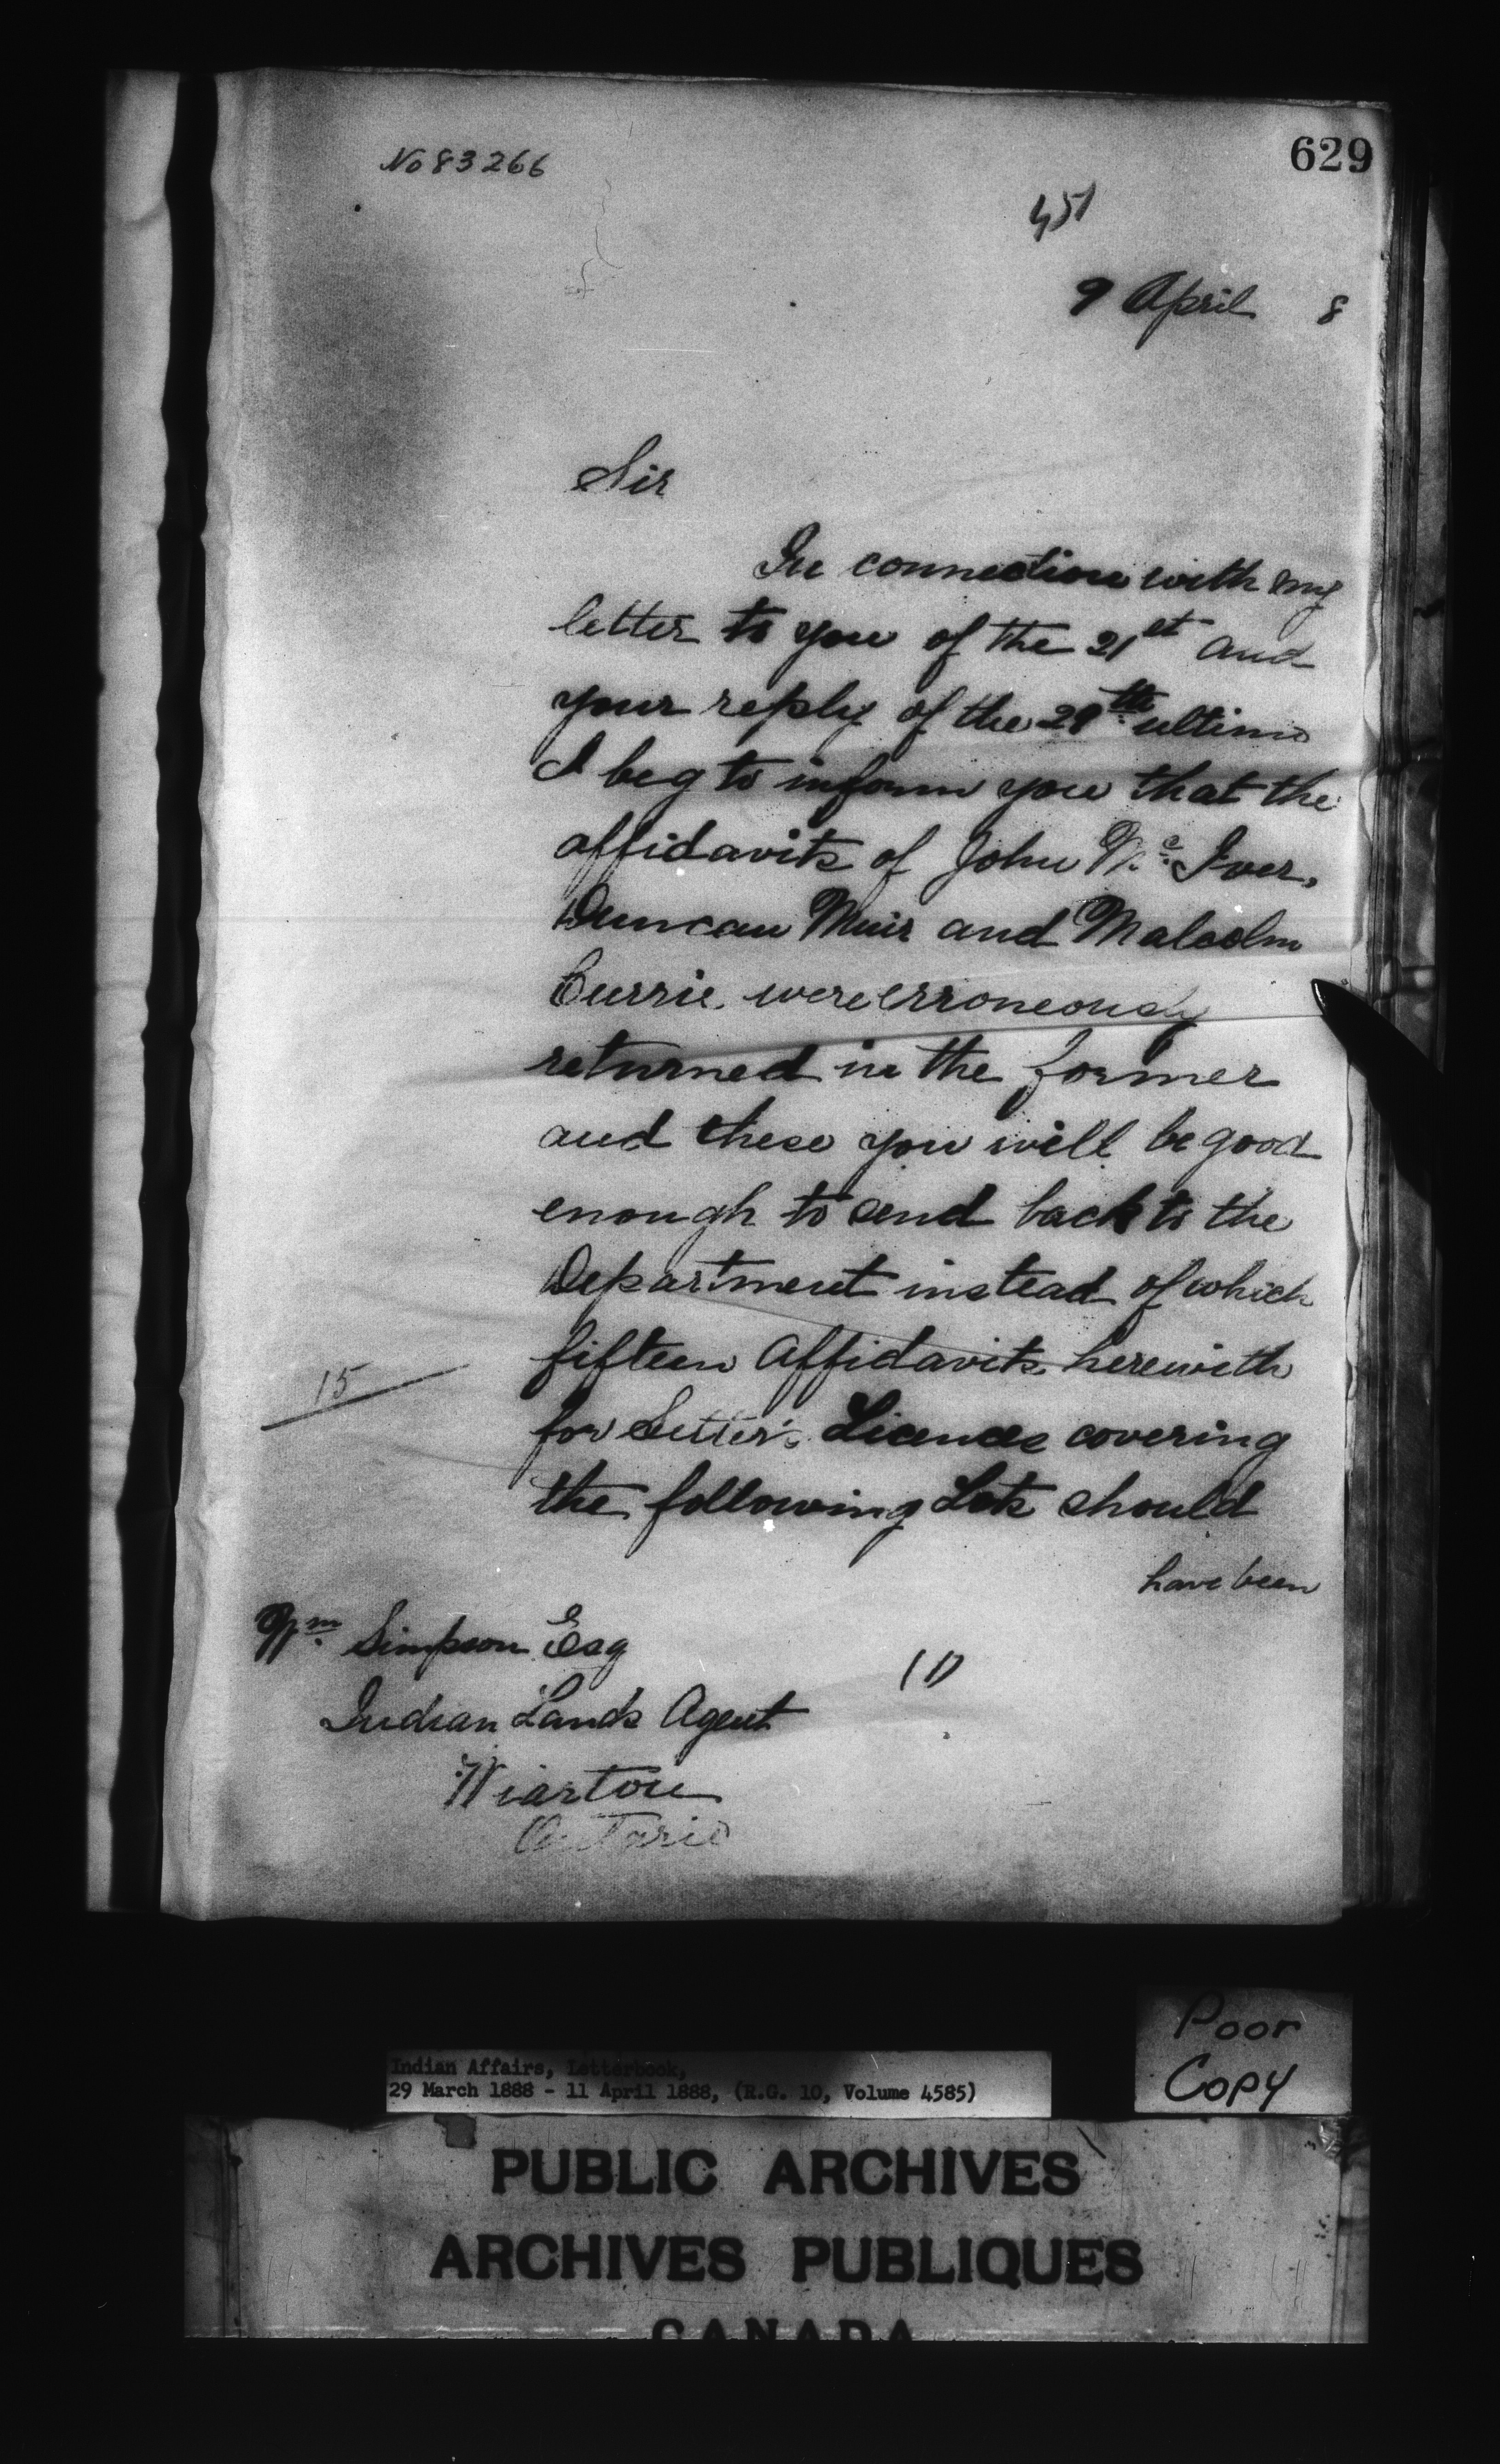 No 83266
629
451
9 April 8
Sir
In connection with my
letter to you of the 21st and
your reply of the 29th ultimo
I beg to inform you that the
affidavits of John Mc. Iver,
Duncan Muir and Malcolm
Currie were erroneously
returned in the former
and these you will be good
enough to send back to the
Department instead of which
fifteen Affidavits herewith
15
for Settler's Licences covering
the following Lots should
have been
Wm Simpson Esq
Indian Lands Agent
Wiarton
Ontario
(1)
Poor
Copy
Indian Affairs, Letterbook,
29 March 1888 - 11 April 1888, (R.G. 10, Volume 4585)
PUBLIC ARCHIVES
ARCHIVES PUBLIQUES
CANADA